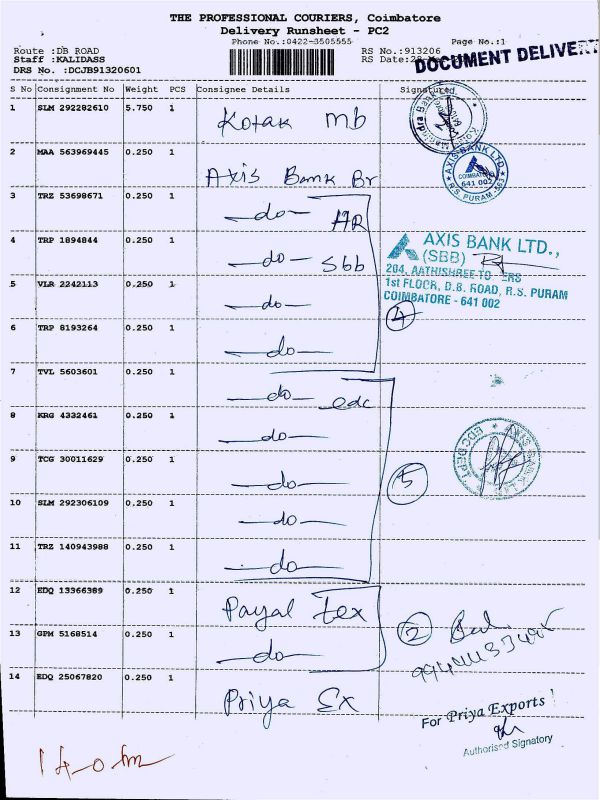 THE PROFESSIONAL COURIERS, Coimbatore
Delivery Runsheet - PC2
Phone No.:0422-3505555
Page No.:1
Route :DB ROAD
RS No.:913206
Staff :KALIDASS
RS Date:
DRS No. :DCJB91320601
DOCUMENT DELIVERY
S No Consignment No Weight PCS Consignee Details Signatured
1 SLM 292282610 5.750 1 Kotak mb
2 MAA 563969445 0.250 1 Axis Bank Br
AXIS BANK LTD.
COIMBATORE
641 002
R.S. PURAM
3 TRZ 53698671 0.250 1 —do— HR
4 TRP 1894844 0.250 1 —do— Sbb
AXIS BANK LTD.,
(SBB)
204, AATHISHREE TO ERS
1st FLOOR, D.B. ROAD, R.S. PURAM
COIMBATORE - 641 002
5 VLR 2242113 0.250 1 —do—
4
6 TRP 8193264 0.250 1 —do—
7 TVL 5603601 0.250 1 —do— edc
8 KRG 4332461 0.250 1 —do—
9 TCG 30011629 0.250 1 —do—
5
EDC DEPT
AXIS BANK
10 SLM 292306109 0.250 1 —do—
11 TRZ 140943988 0.250 1 —do—
12 EDQ 13366389 0.250 1 Payal tex
2
13 GPM 5168514 0.250 1 —do—
14 EDQ 25067820 0.250 1 Priya Ex
For Priya Exports
Authorised Signatory